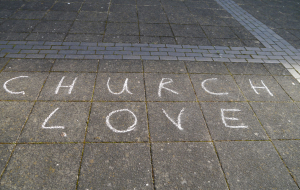 CHURCH
LOVE